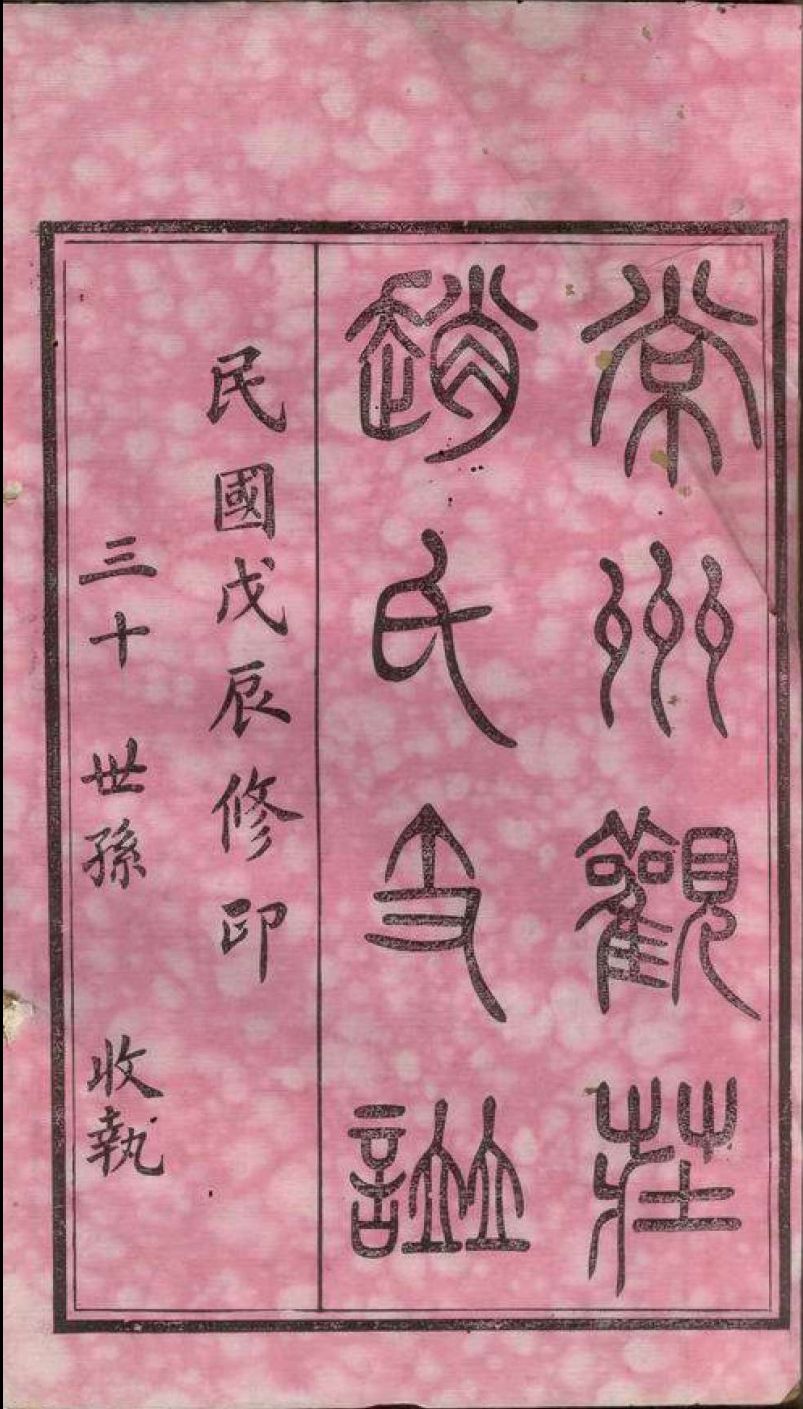 常州觀莊
趙氏支譜
民國戊辰修印
三十 世孫 收執